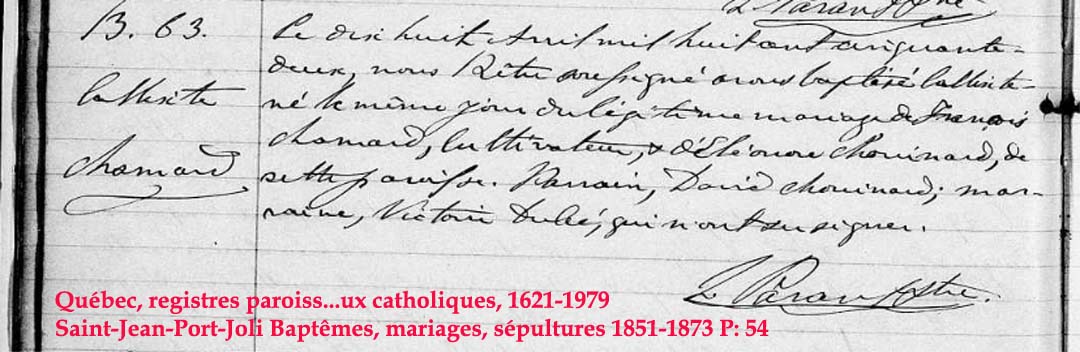 L Parant Ptre
B. 63.
Calliste
Chamard
Le dix huit Avril mil huit cent cinquante-
deux, nous Prêtre soussigné avons baptisé Calliste
né le même jour du légitime mariage de François
Chamard, Cultivateur, & d'Eléonore Chouinard, de
cette paroisse. Parrain, David Chouinard; mar-
raine, Victoire Dubé, qui n'ont su signer.
L Parant Ptre.
Québec, registres paroiss...ux catholiques, 1621-1979
Saint-Jean-Port-Joli Baptêmes, mariages, sépultures 1851-1873 P: 54